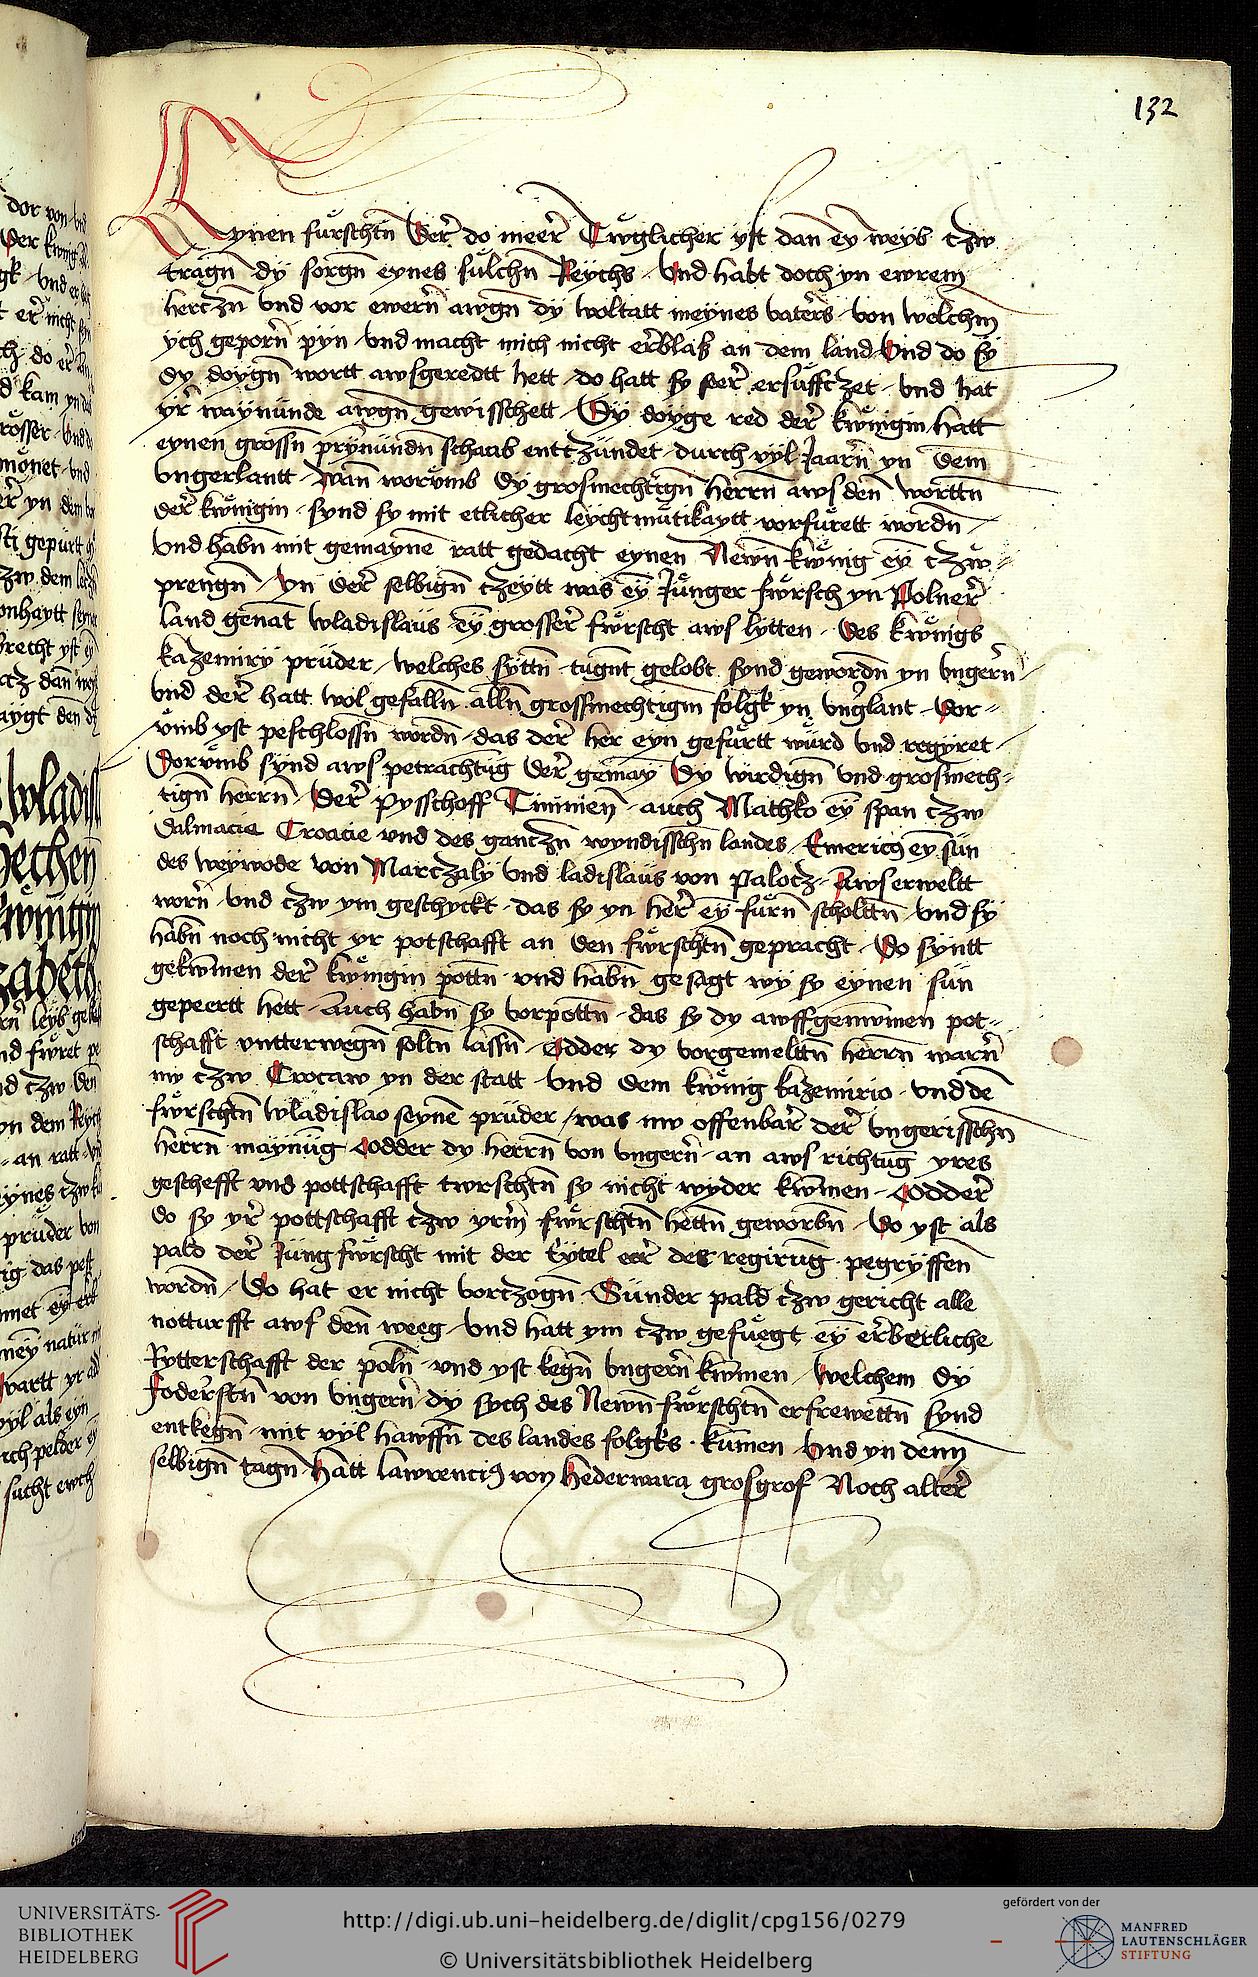 132
Eynen fürschtn̄ Der̄ do meer̄ Twglicher yst dan̄ eȳ weyb tzw
tragn̄ dy sorgn̄ eynes sülchn̄ Reychs · Und habt doch yn ewrem
hertzn̄ vnd vor ewern̄ awgn̄ dy woltatt meynes vaters · von welchm̄
ych geporn̄ pyn · vnd macht mich nicht erblas an dem land · Und do sy
dy doygn̄ wortt awsgeredtt hett · do hatt sy ser̄ ersüfftzet · vnd hat
yr̄ waynünde awgn̄ gewisschett · Dy doyge red der̄ kwnigin hatt
eynen grossn̄ prynündn̄ schaab enttzündet · durch vyl Jaarn̄ yn dem
vngerlantt · wan̄ worumb dy grosmechtign̄ herrn̄ aws den worttn̄
der̄ kwnigin · synd sy mit etlicher leychtmütikaytt vorfürett wordn̄
vnd habn̄ mit gemaynē ratt gedacht eynen Newn̄ kwnig eȳ tzw
prengn̄ · yn der̄ selbign̄ tzeytt was eȳ Jünger fwrsch yn Polner̄
land genāt wladislaüs eȳ grosser̄ fwrscht aws lytten · des kwnigs
kazemiry prüder · welches syttn̄ · tugnt gelobt synd gewordn̄ yn vngern̄
vnd der̄ hatt wol gefalln̄ alln̄ grossmechtigm̄ folgk yn vnglant · Dor
vmb yst peschlossn̄ wordn̄ · das der̄ her eyn gefürtt würd vnd regyret
Dorumb synd aws petrachtūg der̄ gemay Dy wirdign̄ vnd grosmech
tign̄ herrn̄ · Der̄ Pysschoff Timinen̄ · auch Mathko eȳ span tzw
dalmacia Croacie vnd des gantzn̄ wyndisschn̄ landes · Emericus eȳ sün
des weywode von Martzaly vnd ladislaüs von Palotz · Awserweltt
worn̄ · vnd tzw ym geschyckt · das sy yn her̄ eȳ fürn̄ scholttn̄ · vnd sy
habn̄ noch nicht yr potschafft an den fwrschtn̄ gepracht · Do syntt
gekwmen der̄ kwnigin pottn̄ · vnd habn̄ gesagt wy sy eynen sün
gepeertt hett · Auch habn̄ sy vorpottn̄ · das sy dy awffgenwmen pot
schafft vntterwegn̄ soltn̄ lassn̄ · Odder dy vorgemelttn̄ herrn̄ warn̄
nw tzw Crocaw yn der statt · vnd dem kwnig kazemirio · vnd dē
fwrschtn̄ wladislao seynē prüder · was nw offenbar̄ der̄ vngerisschn̄
herrn̄ maynūg · Odder dy herrn̄ von vngern̄ · an aws richtūg yres
geschefft vnd pottschafft twrschtn̄ sy nicht wyder kwmen · Odder̄
do sy yr̄ pottschafft tzw yrm̄ fwrschtn̄ hettn̄ geworbn̄ · Do yst als
pald der̄ Jüng fwrscht mit der tytel der regirūg · pegryffen
wordn̄ · Do hat er nicht vortzogn̄ · Sünder pald tzw gericht alle
notturfft awf den weeg · vnd hatt ym tzw gefuegt eȳ erberliche
Rytterschafft der poln̄ · vnd yst kegn̄ vngern̄ kwmen · welchem dy
foderstn̄ von vngern̄ · dy sych des Newn̄ fwrschtn̄ erfrewettn̄ synd
entkegn̄ · mit vyl hawffn̄ des landes folgks · kūmen · Und yn denn̄
selbign̄ tagn̄ Hatt lawrencius von Hederwara grosgrof Noch alter̄
UNIVERSITÄTS-
BIBLIOTHEK
HEIDELBERG
http://digi.ub.uni-heidelberg.de/diglit/cpg156/0279
© Universitätsbibliothek Heidelberg
gefördert von der
MANFRED
LAUTENSCHLÄGER
STIFTUNG